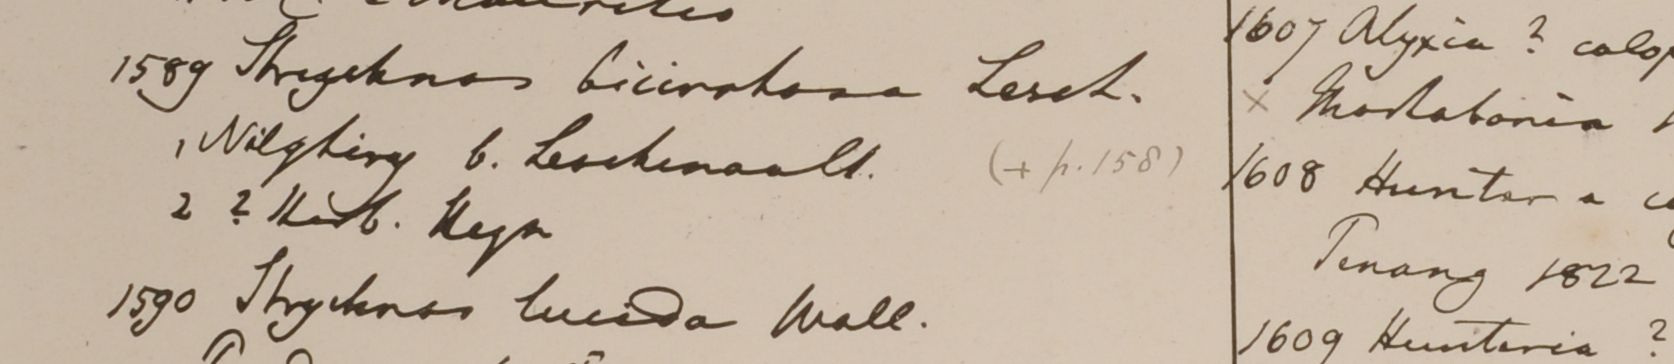 1589 Strychnos bicirrhosa Lesch.
1 Nilghiry b. Leschenault. (+ p. 158)
2 ? Herb. Heyn
1590 Strychnos lucida Wall.
1607 Alyxia ? calop
x Martabania
1608 Hunter a
Penang 1822
1609 Hunteria ?